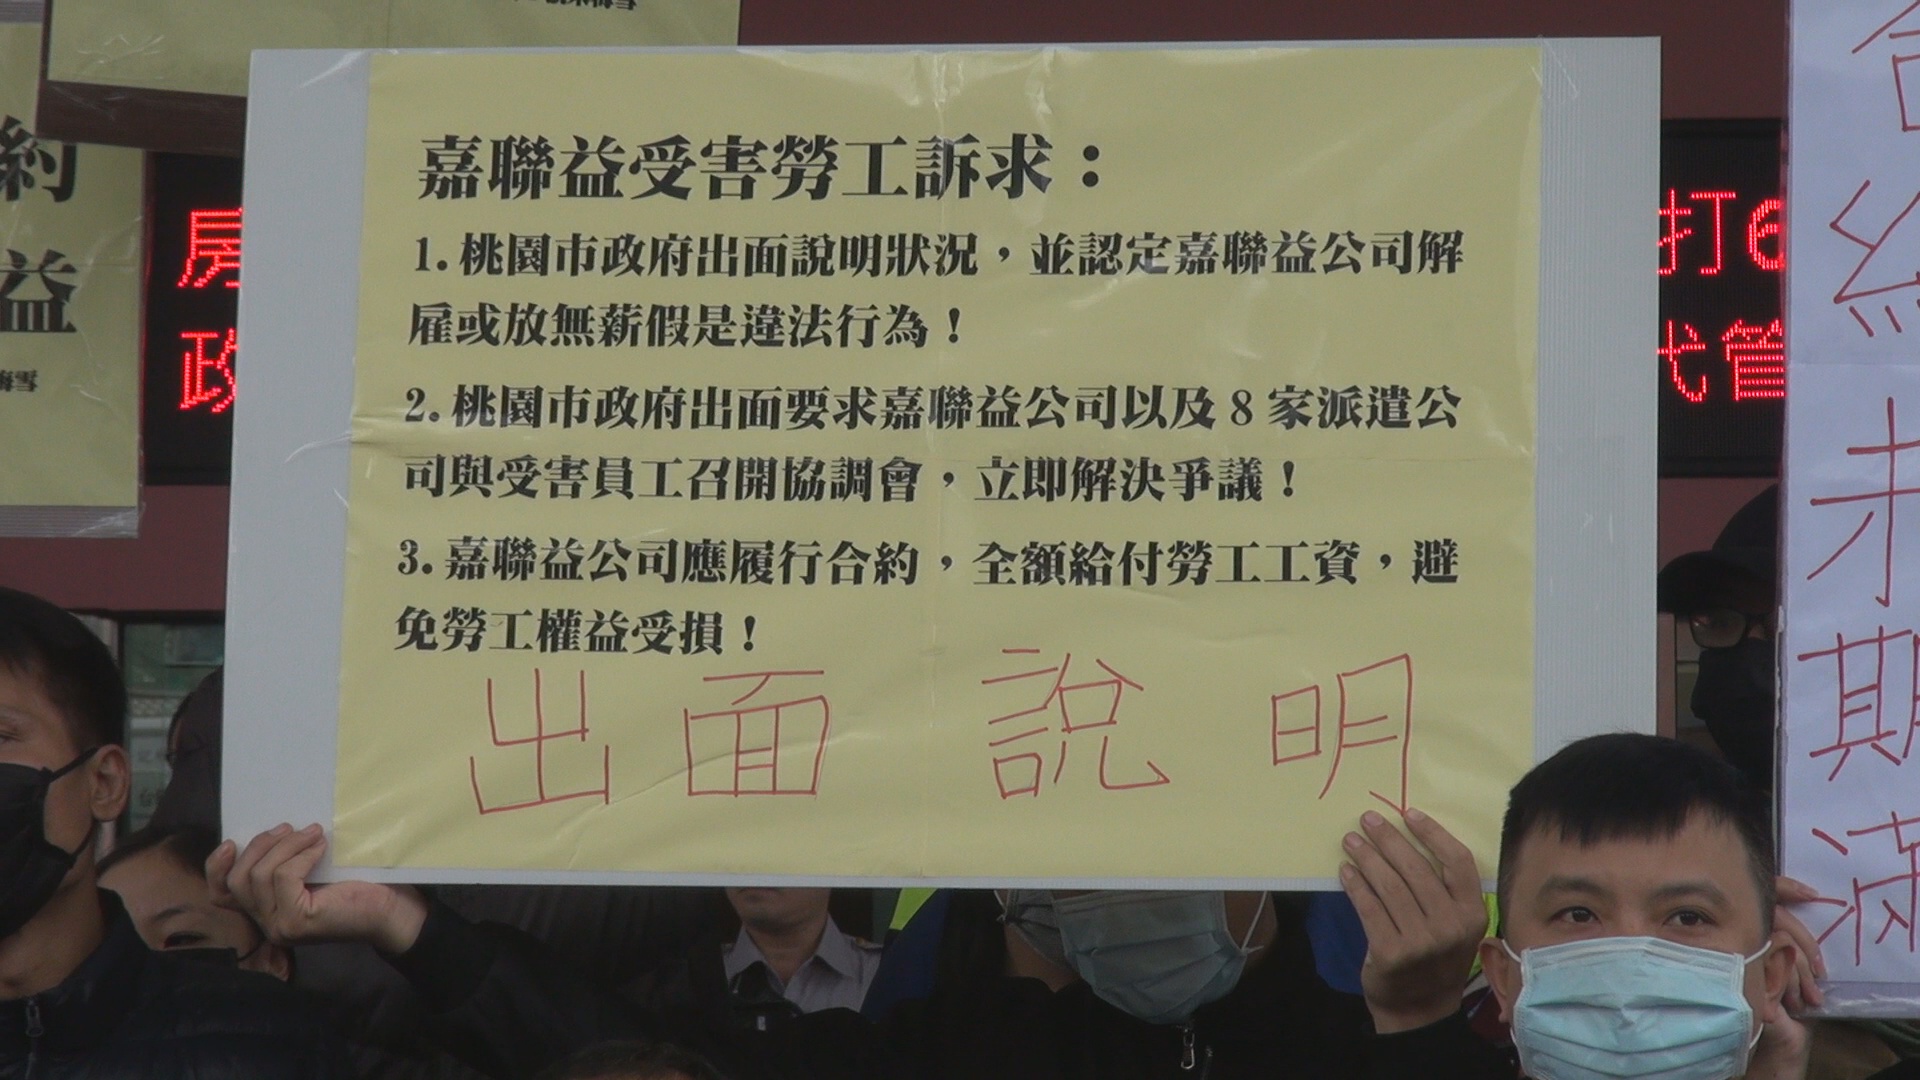 約
益
房
政
嘉聯益受害勞工訴求：
1.桃園市政府出面說明狀況，並認定嘉聯益公司解
雇或放無薪假是違法行為！
2.桃園市政府出面要求嘉聯益公司以及8家派遣公
司與受害員工召開協調會，立即解決爭議！
3.嘉聯益公司應履行合約，全額給付勞工工資，避
免勞工權益受損！
出面說明
打6
代管
合約未期滿